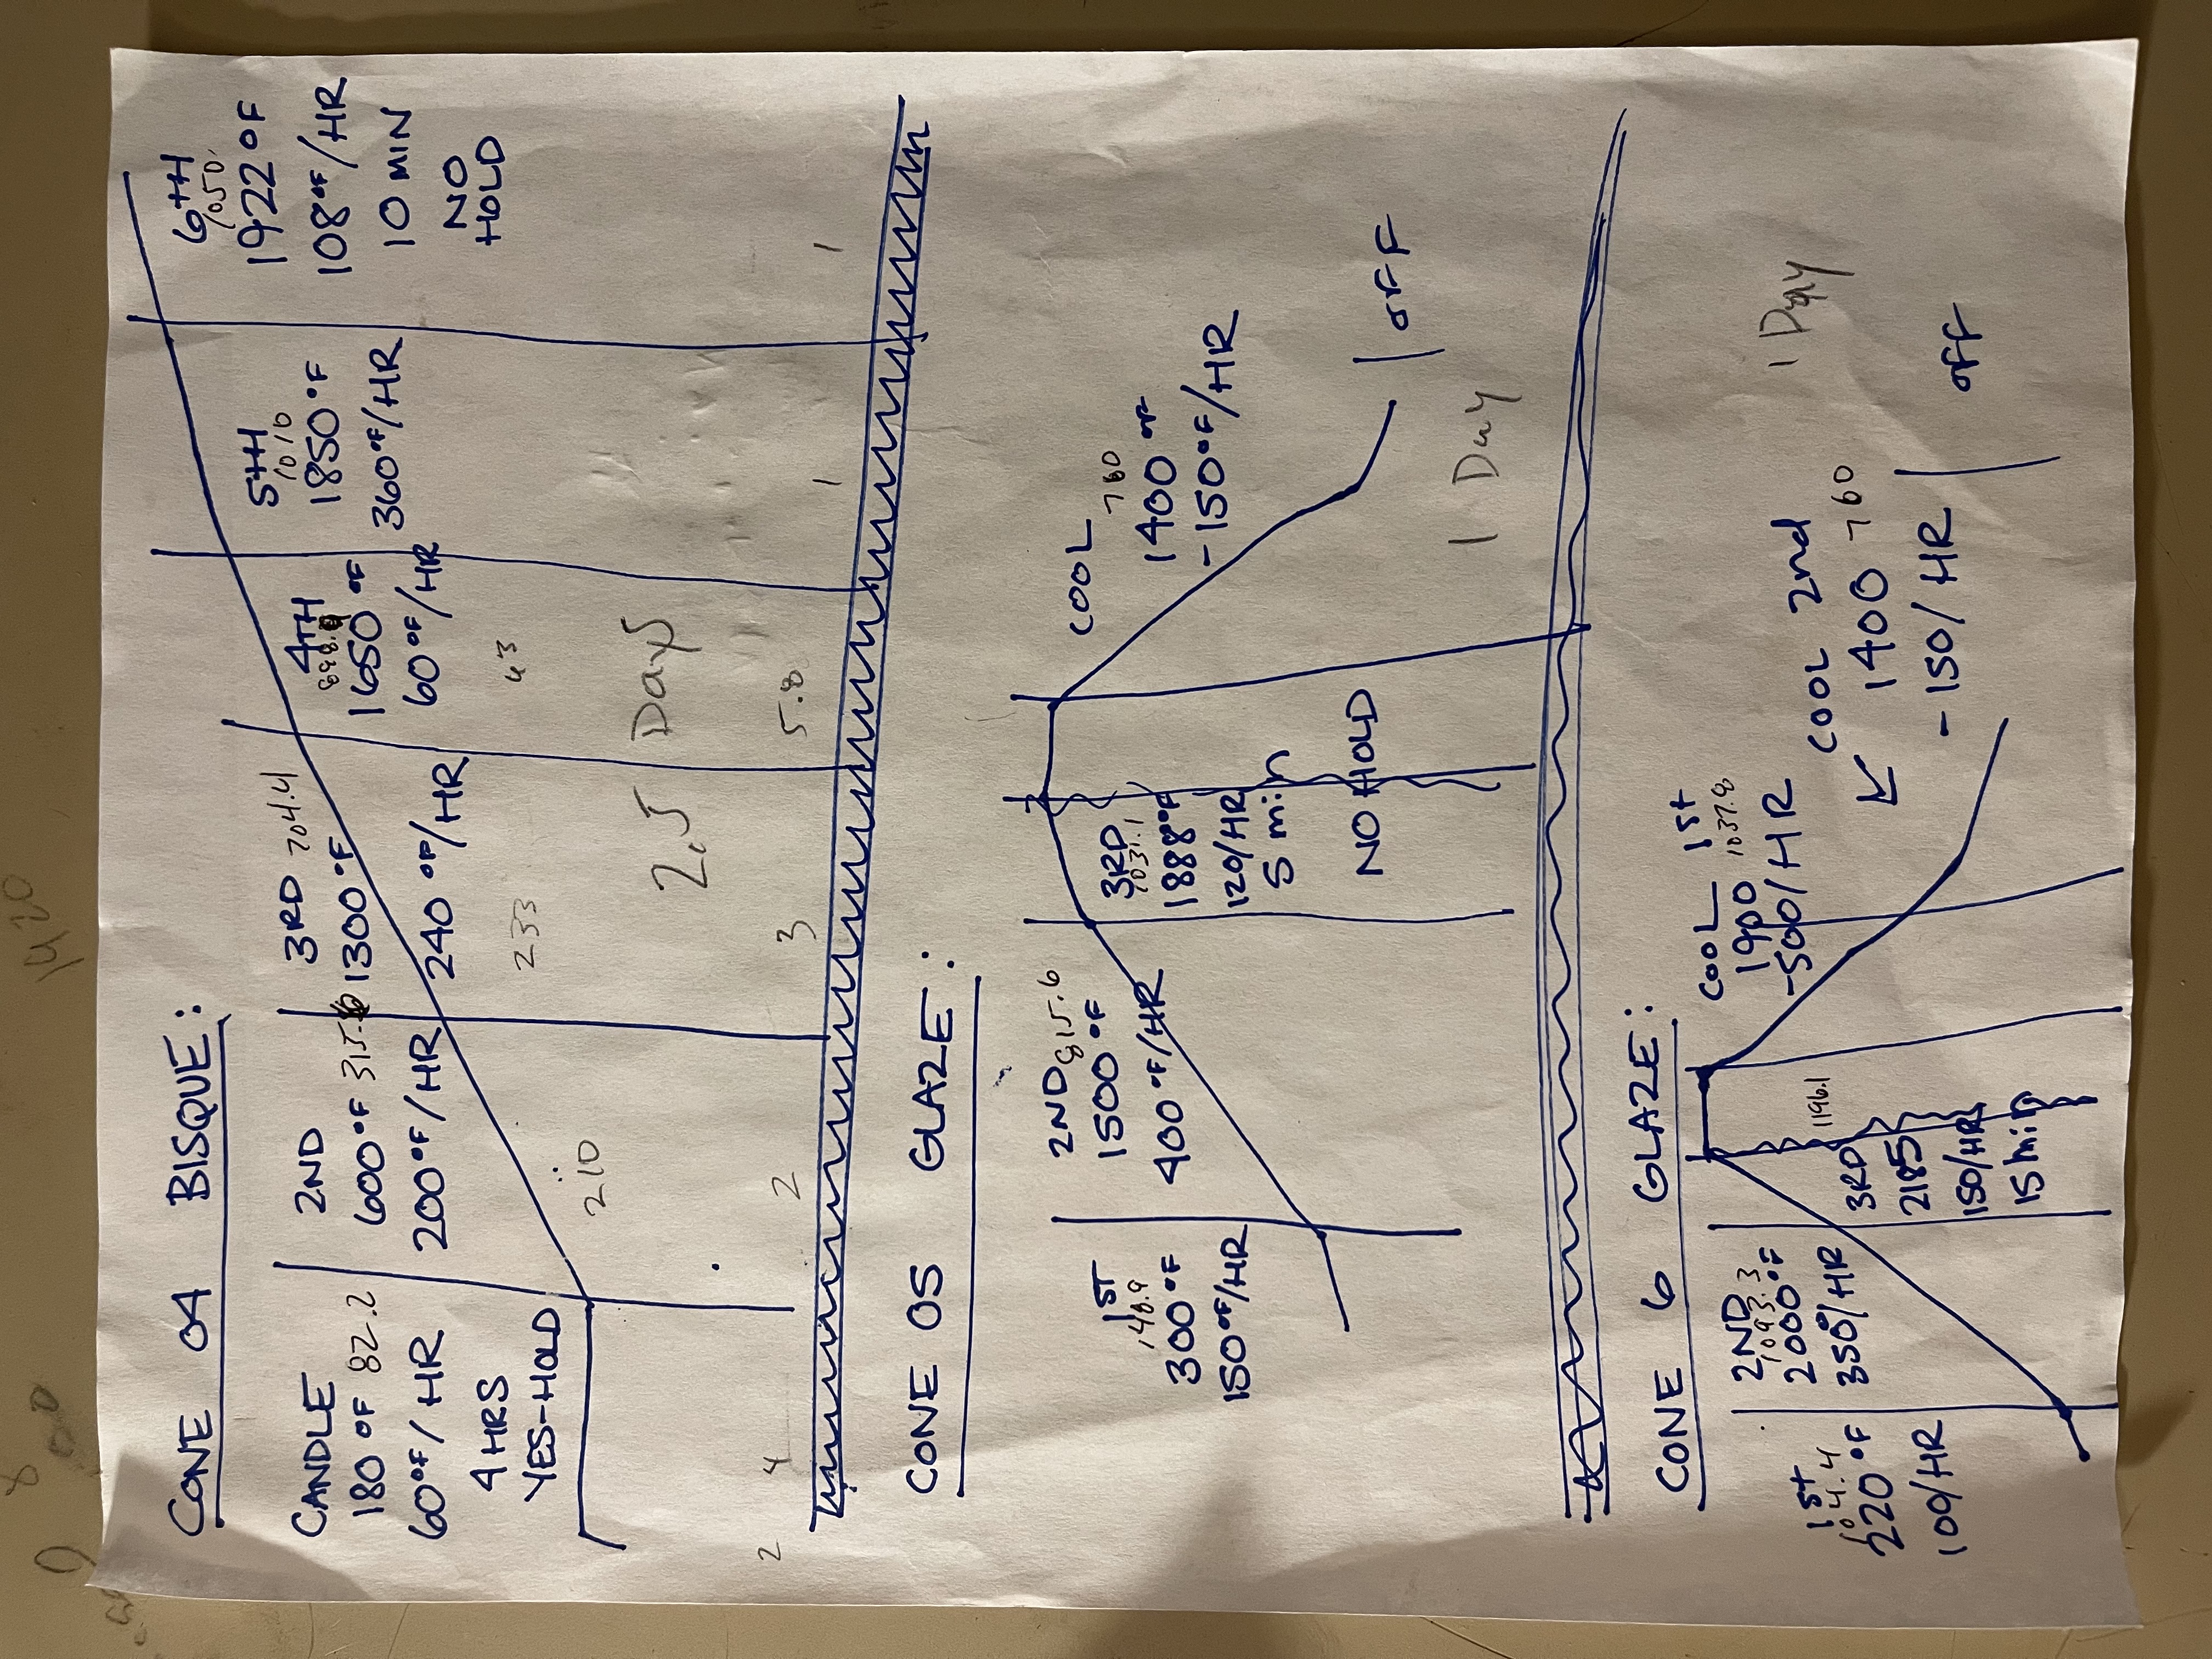 1920
CONE 04 BISQUE:
CANDLE
180 °F 82.2
60°F/HR
4 HRS
YES-HOLD
2ND
600°F 315.6
200°F/HR
210
3RD 704.4
1300°F
240 °F/HR
233
4TH
898.9
1650°F
60°F/HR
63
5TH
1010
1850°F
360°F/HR
6TH
1050
1922°F
108°F/HR
10 MIN
NO
HOLD
2.5 Days
2 4 2 3 5.8 1 1
CONE 05 GLAZE:
1ST
148.9
300°F
150°F/HR
2ND 815.6
1500°F
400°F/HR
3RD
1031.1
1888°F
120/HR
5 min
NO HOLD
COOL
760
1400°F
-150°F/HR
OFF
1 Day
CONE 6 GLAZE:
1st
104.4
220°F
100/HR
2ND
1093.3
2000°F
350°/HR
3RD
1196.1
2185
150/HR
15 min
COOL 1st
1900 1037.8
-500/HR
COOL 2nd
1400 760
-150/HR
OFF
1 Day